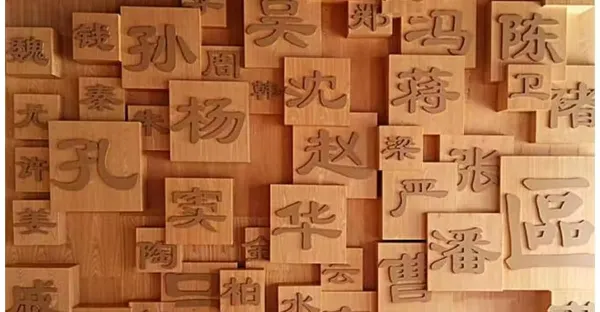 吴
郑
冯
陈
魏
钱
孙
周
韩
沈
蒋
卫
褚
尤
秦
朱
杨
赵
梁
张
许
孔
严
姜
窦
华
潘
區
陶
金
云
曹
戚
柏
水